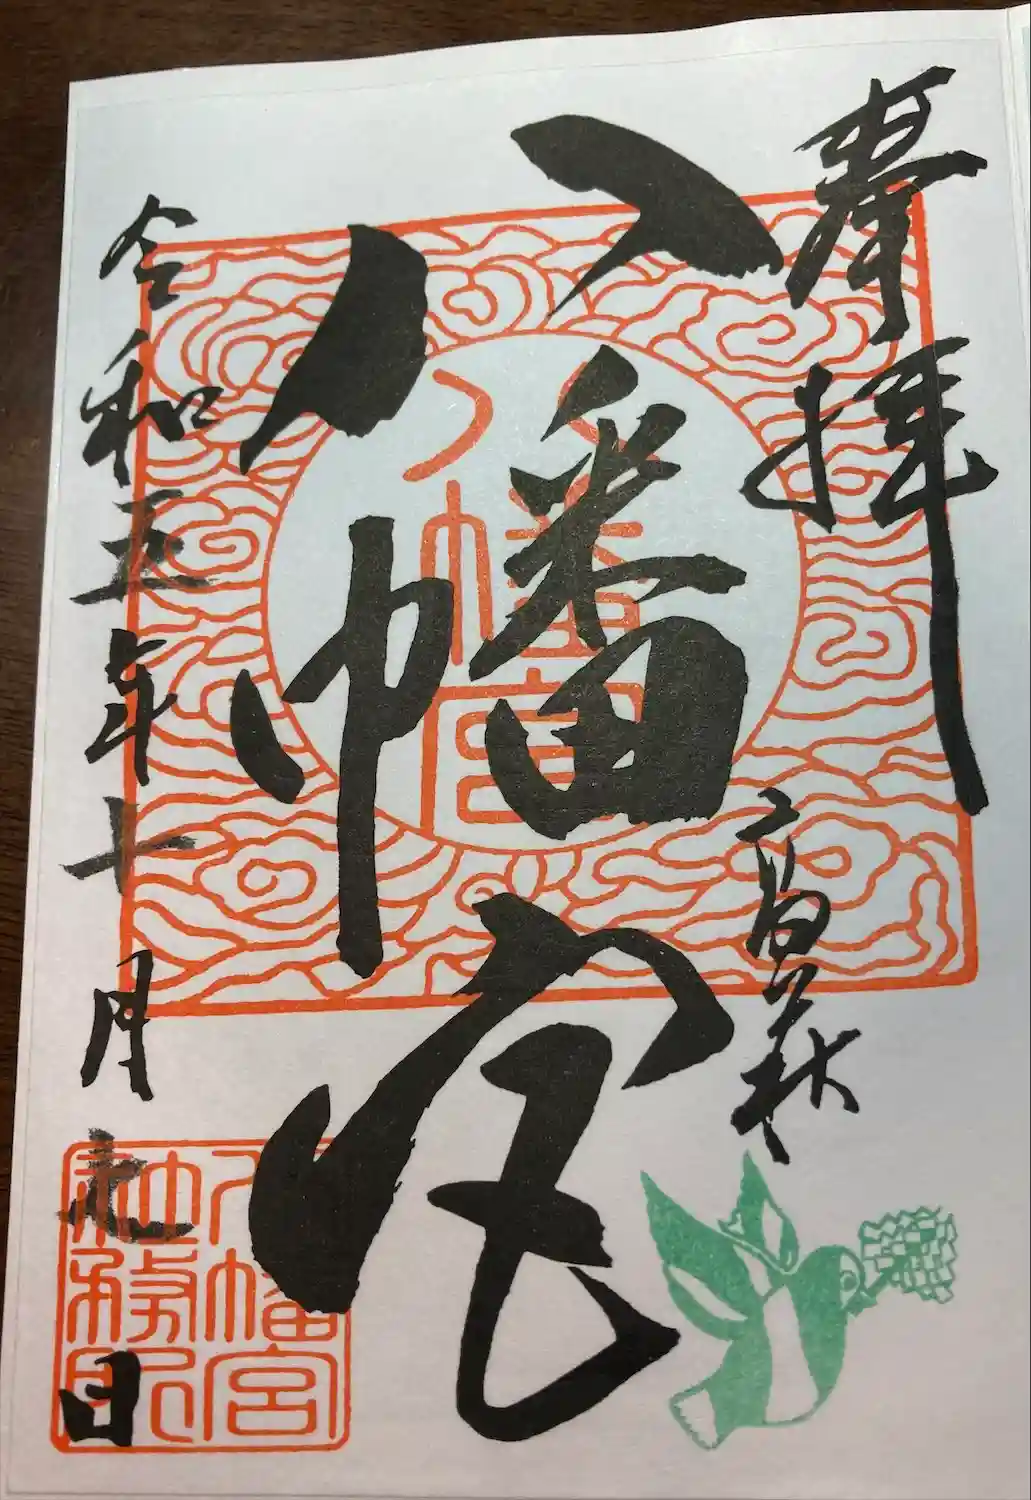 奉拝
高萩
八幡宮
八幡宮
令和五年十月 日
八幡宮
社務印